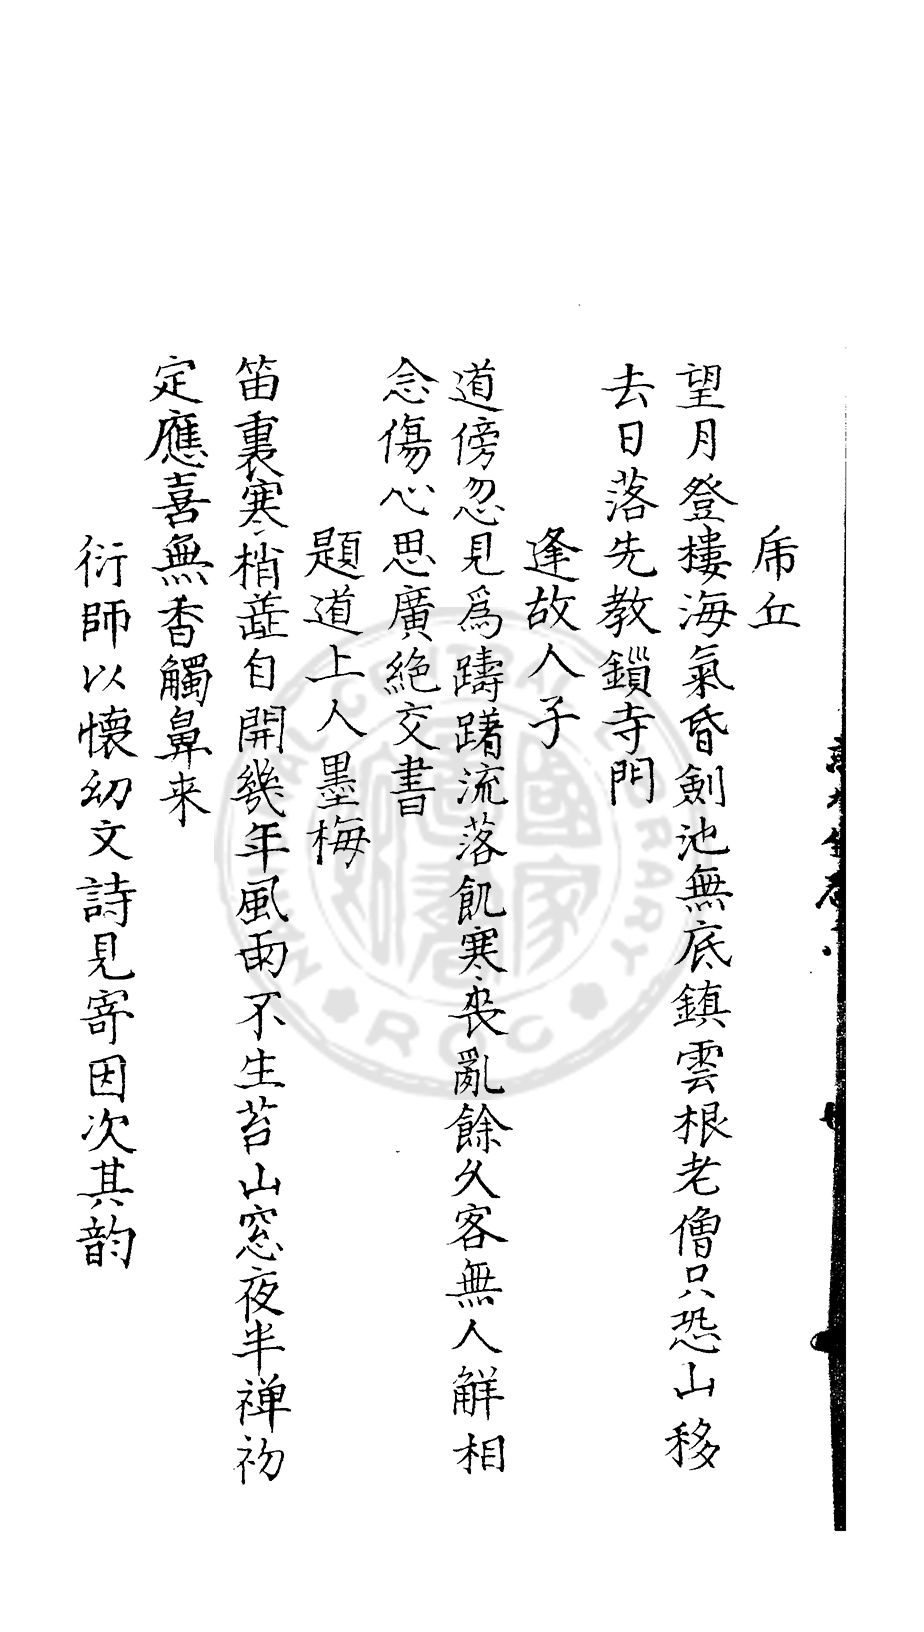 乕丘
望月登樓海氣昏劍池無底鎮雲根老僧只恐山移
去日落先教鎖寺門
逢故人子
道傍忽見爲躊躇流落飢寒喪亂餘久客無人觧相
念傷心思廣絶交書
題道上人墨梅
笛裏寒梢蘂自開幾年風雨不生苔山窓夜半禅初
定應喜無香觸鼻来
衍師以懷幼文詩見寄因次其韵